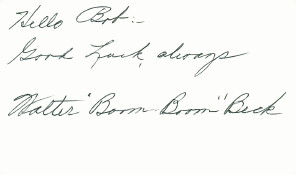 Hello Bob:-
Good Luck, always
Walter "Boom-Boom" Beck